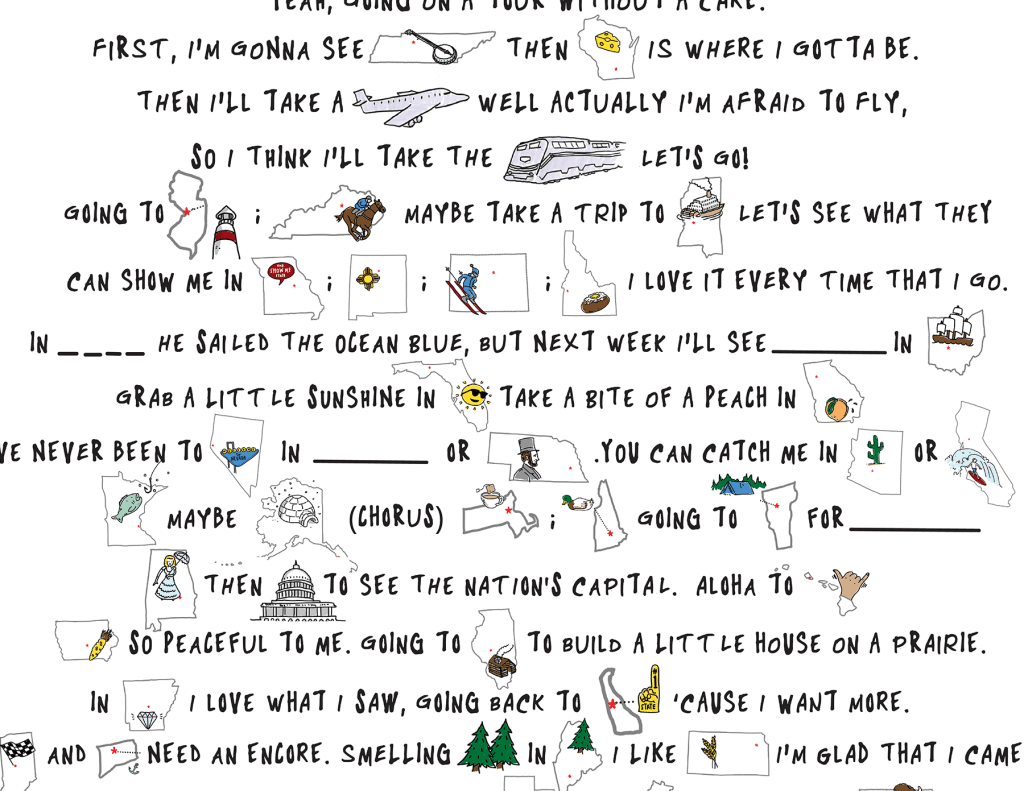 YEAH, GOING ON A TOUR WITHOUT A CARE.
FIRST, I'M GONNA SEE THEN IS WHERE I GOTTA BE.
THEN I'LL TAKE A WELL ACTUALLY I'M AFRAID TO FLY,
SO I THINK I'LL TAKE THE LET'S GO!
GOING TO ; MAYBE TAKE A TRIP TO LET'S SEE WHAT THEY
CAN SHOW ME IN THE SHOW ME STATE ; ; ; I LOVE IT EVERY TIME THAT I GO.
IN ____ HE SAILED THE OCEAN BLUE, BUT NEXT WEEK I'LL SEE ________ IN
GRAB A LITTLE SUNSHINE IN TAKE A BITE OF A PEACH IN
VE NEVER BEEN TO NEVADA IN ________ OR .YOU CAN CATCH ME IN OR
MAYBE (CHORUS) ; GOING TO FOR ________
THEN TO SEE THE NATION'S CAPITAL. ALOHA TO
SO PEACEFUL TO ME. GOING TO TO BUILD A LITTLE HOUSE ON A PRAIRIE.
IN I LOVE WHAT I SAW, GOING BACK TO #1 STATE 'CAUSE I WANT MORE.
AND NEED AN ENCORE. SMELLING IN I LIKE I'M GLAD THAT I CAME